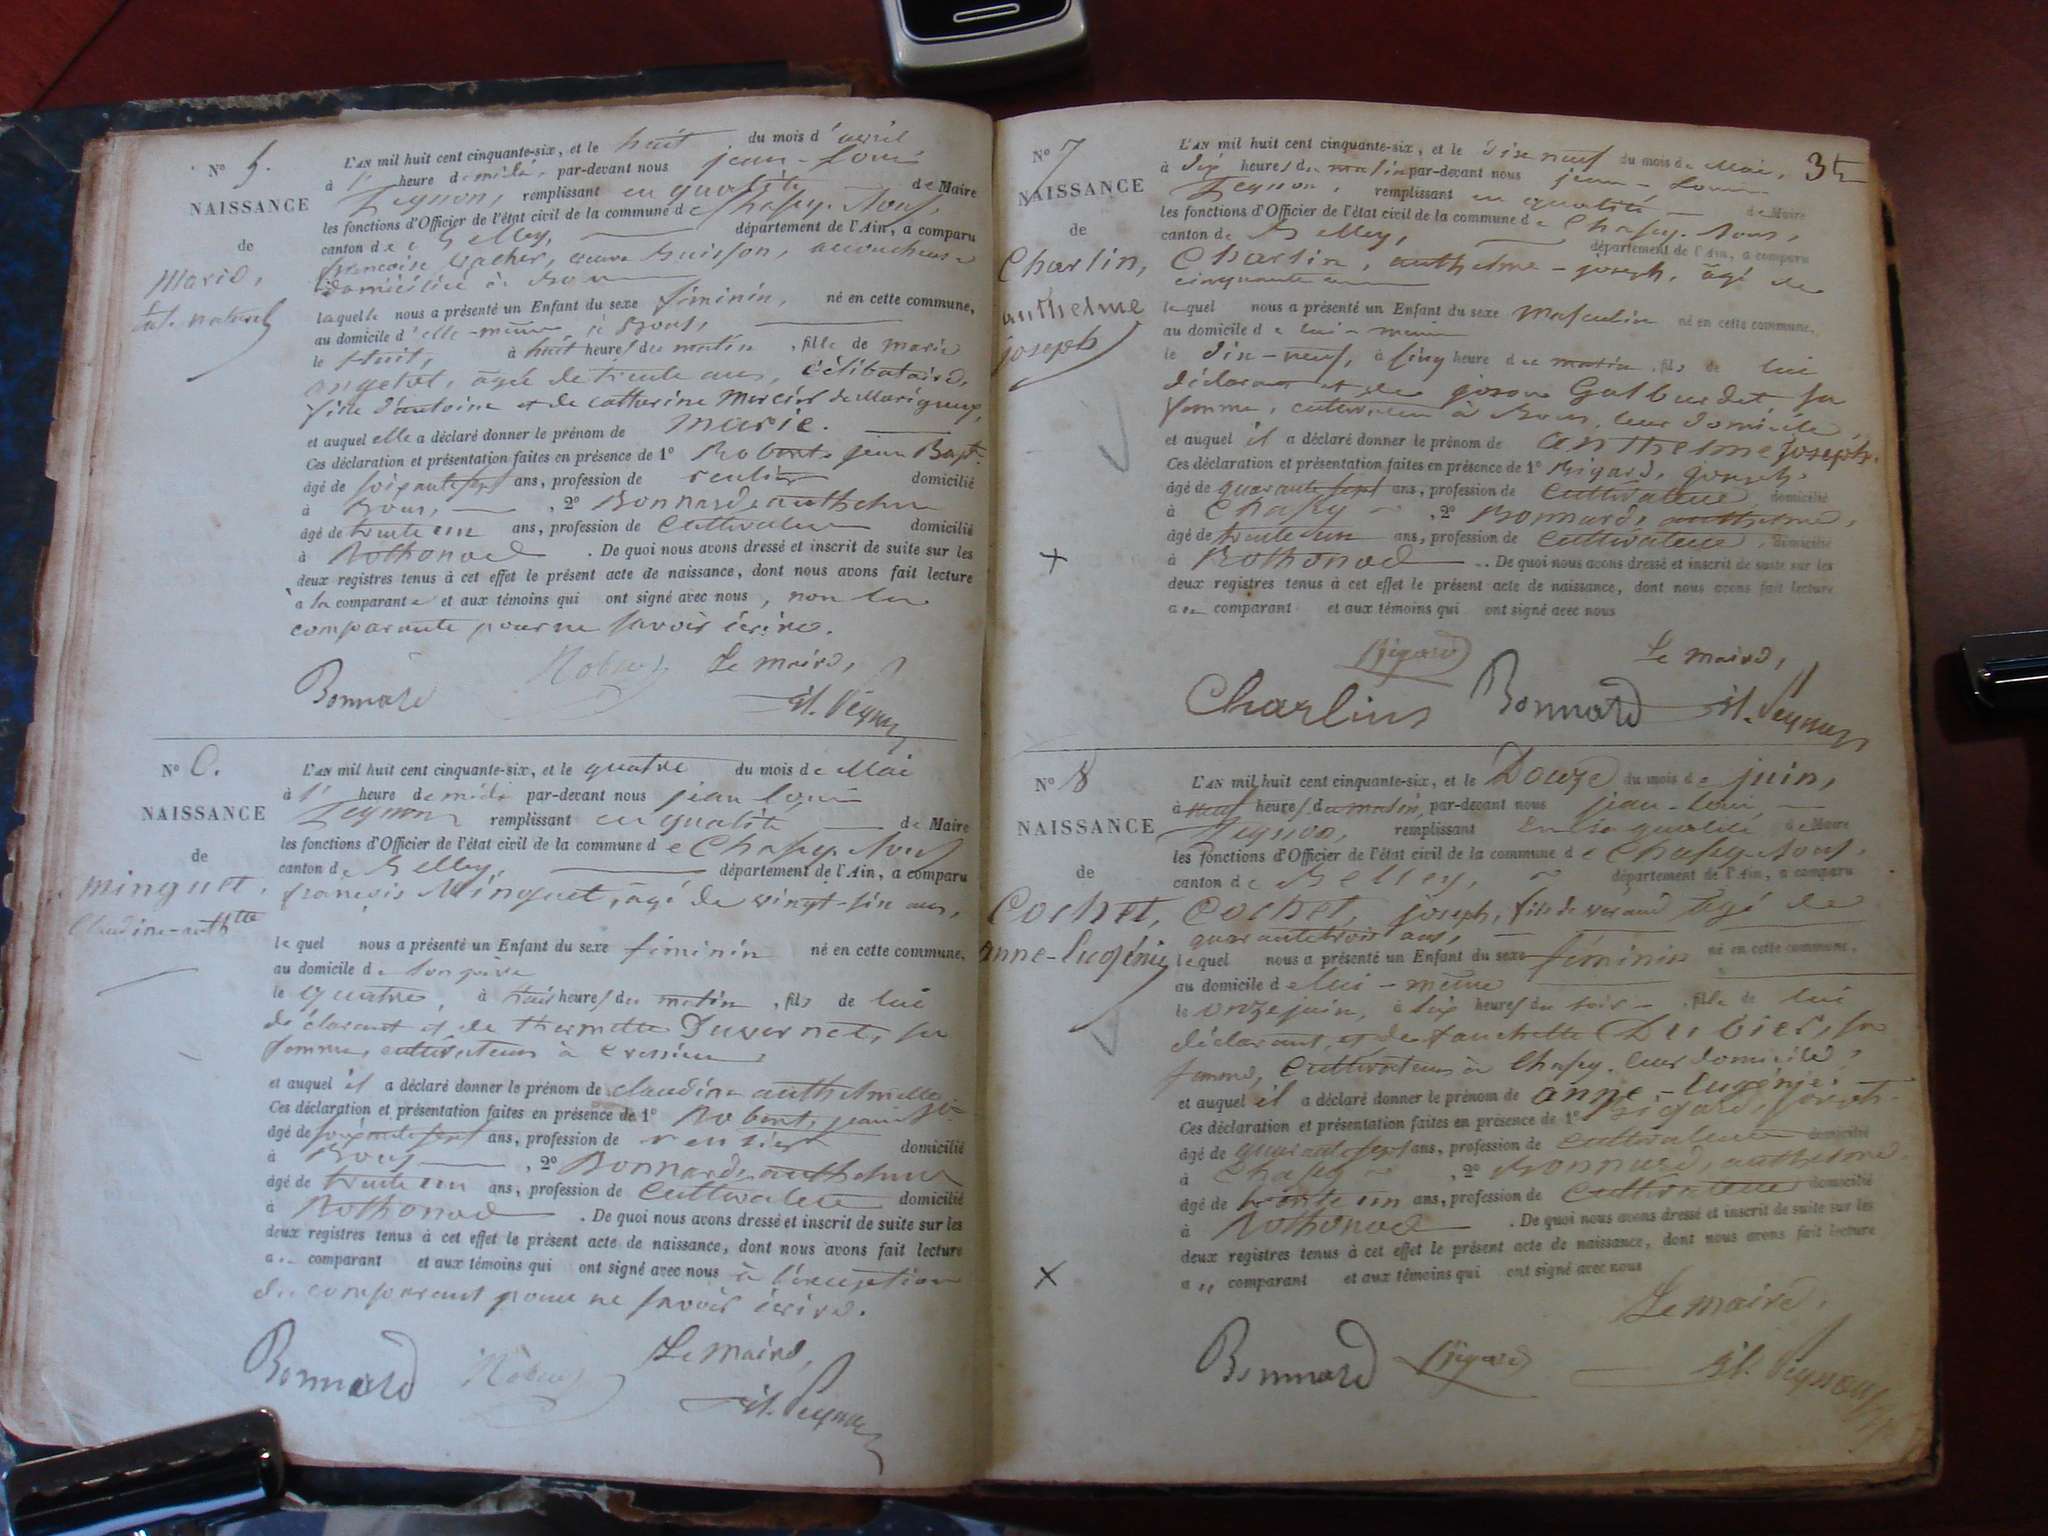 N° 5.
NAISSANCE
de
Marie,
enft. naturel
L'AN mil huit cent cinquante-six, et le huit du mois d'avril
à 1' heure de midi, par-devant nous jean-Louis
Peysson, remplissant en qualité de Maire
les fonctions d'Officier de l'état civil de la commune de Chasey-Bons,
canton de Belley, département de l'Ain, a comparu
françoise Vacher, veuve Buisson, accoucheuse
domiciliée à Bons
laquelle nous a présenté un Enfant du sexe féminin, né en cette commune,
au domicile d'elle-même à Bons,
le huit, à huit heures du matin, fille de marie
angelot, âgée de trente ans, célibataire,
fille d'antoine et de catherine Mercier de Marignieu,
et auquel elle a déclaré donner le prénom de marie.
Ces déclaration et présentation faites en présence de 1° Robert, jean Bapt.
âgé de soixante sept ans, profession de rentier domicilié
à Bons, 2° Bonnard, anthelme
âgé de trente un ans, profession de cultivateur domicilié
à Rothonod. De quoi nous avons dressé et inscrit de suite sur les
deux registres tenus à cet effet le présent acte de naissance, dont nous avons fait lecture
a la comparante et aux témoins qui ont signé avec nous, non la
comparante pour ne savoir écrire.
Le maire,
Bonnard Robert
N° 6.
NAISSANCE
de
Minguet,
Claudine-anthtte
L'AN mil huit cent cinquante-six, et le quatre du mois de Mai
à 1' heure de midi par-devant nous jean Louis
Peysson remplissant en qualité de Maire
les fonctions d'Officier de l'état civil de la commune de Chasey-Bons
canton de Belley, département de l'Ain, a comparu
françois Minguet, âgé de vingt-sin ans,
lequel nous a présenté un Enfant du sexe féminin né en cette commune,
au domicile de son père
le quatre, à trois heures du matin, fils de lui
déclarant et de thermette Duvernet, sa
femme, cultivateurs à cressieu,
et auquel il a déclaré donner le prénom de claudine anthelmette
Ces déclaration et présentation faites en présence de 1° Robert, jean Bte
âgé de soixante sept ans, profession de rentier domicilié
à Bons, 2° Bonnard, anthelme
âgé de trente un ans, profession de cultivateur domicilié
à Rothonod. De quoi nous avons dressé et inscrit de suite sur les
deux registres tenus à cet effet le présent acte de naissance, dont nous avons fait lecture
au comparant et aux témoins qui ont signé avec nous à l'exception
du comparant pour ne savoir écrire.
Le Maire,
Bonnard Robert
35
N° 7
NAISSANCE
de
Charlin,
anthelme
joseph
L'AN mil huit cent cinquante-six, et le dix neuf du mois de Mai,
à dix heures du matin par-devant nous jean-Louis
Peysson, remplissant en qualité de Maire
les fonctions d'Officier de l'état civil de la commune de Chasey-Bons,
canton de Belley, département de l'Ain, a comparu
Charlin, anthelme-joseph, âgé de
cinquante ans
lequel nous a présenté un Enfant du sexe Masculin né en cette commune,
au domicile de lui-même
le dix-neuf, à cinq heure du matin, fils de lui
déclarant et de Galburdet sa
femme, cultivateur à Bons, leur domicile,
et auquel il a déclaré donner le prénom de anthelme joseph.
Ces déclaration et présentation faites en présence de 1° Bigard, joseph,
âgé de quarante sept ans, profession de cultivateur domicilié
à Chasey, 2° Bonnard, anthelme,
âgé de trente un ans, profession de cultivateur, domicilié
à Rothonod. De quoi nous avons dressé et inscrit de suite sur les
deux registres tenus à cet effet le présent acte de naissance, dont nous avons fait lecture
au comparant et aux témoins qui ont signé avec nous
Bigard Le maire,
Charlin Bonnard
N° 8
NAISSANCE
de
Cochet,
anne-Eugénie
L'AN mil huit cent cinquante-six, et le Douze du mois de juin,
à neuf heures du matin, par-devant nous jean-Louis
Peysson, remplissant en sa qualité de Maire
les fonctions d'Officier de l'état civil de la commune de Chasey-Bons,
canton de Belley, département de l'Ain, a comparu
Cochet, joseph, fils de veraud âgé de
quarante trois ans,
lequel nous a présenté un Enfant du sexe féminin né en cette commune,
au domicile de lui-même
le onze juin, à six heures du soir, fille de lui
déclarant, et de fanchette Dubier, sa
femme, cultivateurs à Chasey, leur domicile,
et auquel il a déclaré donner le prénom de anne-Eugénie.
Ces déclaration et présentation faites en présence de 1° Bigard, joseph
âgé de quarante sept ans, profession de cultivateur domicilié
à Chasey, 2° Bonnard, anthelme.
âgé de trente un ans, profession de cultivateur domicilié
à Rothonod. De quoi nous avons dressé et inscrit de suite sur les
deux registres tenus à cet effet le présent acte de naissance, dont nous avons fait lecture
au comparant et aux témoins qui ont signé avec nous
Le maire,
Bonnard Bigard